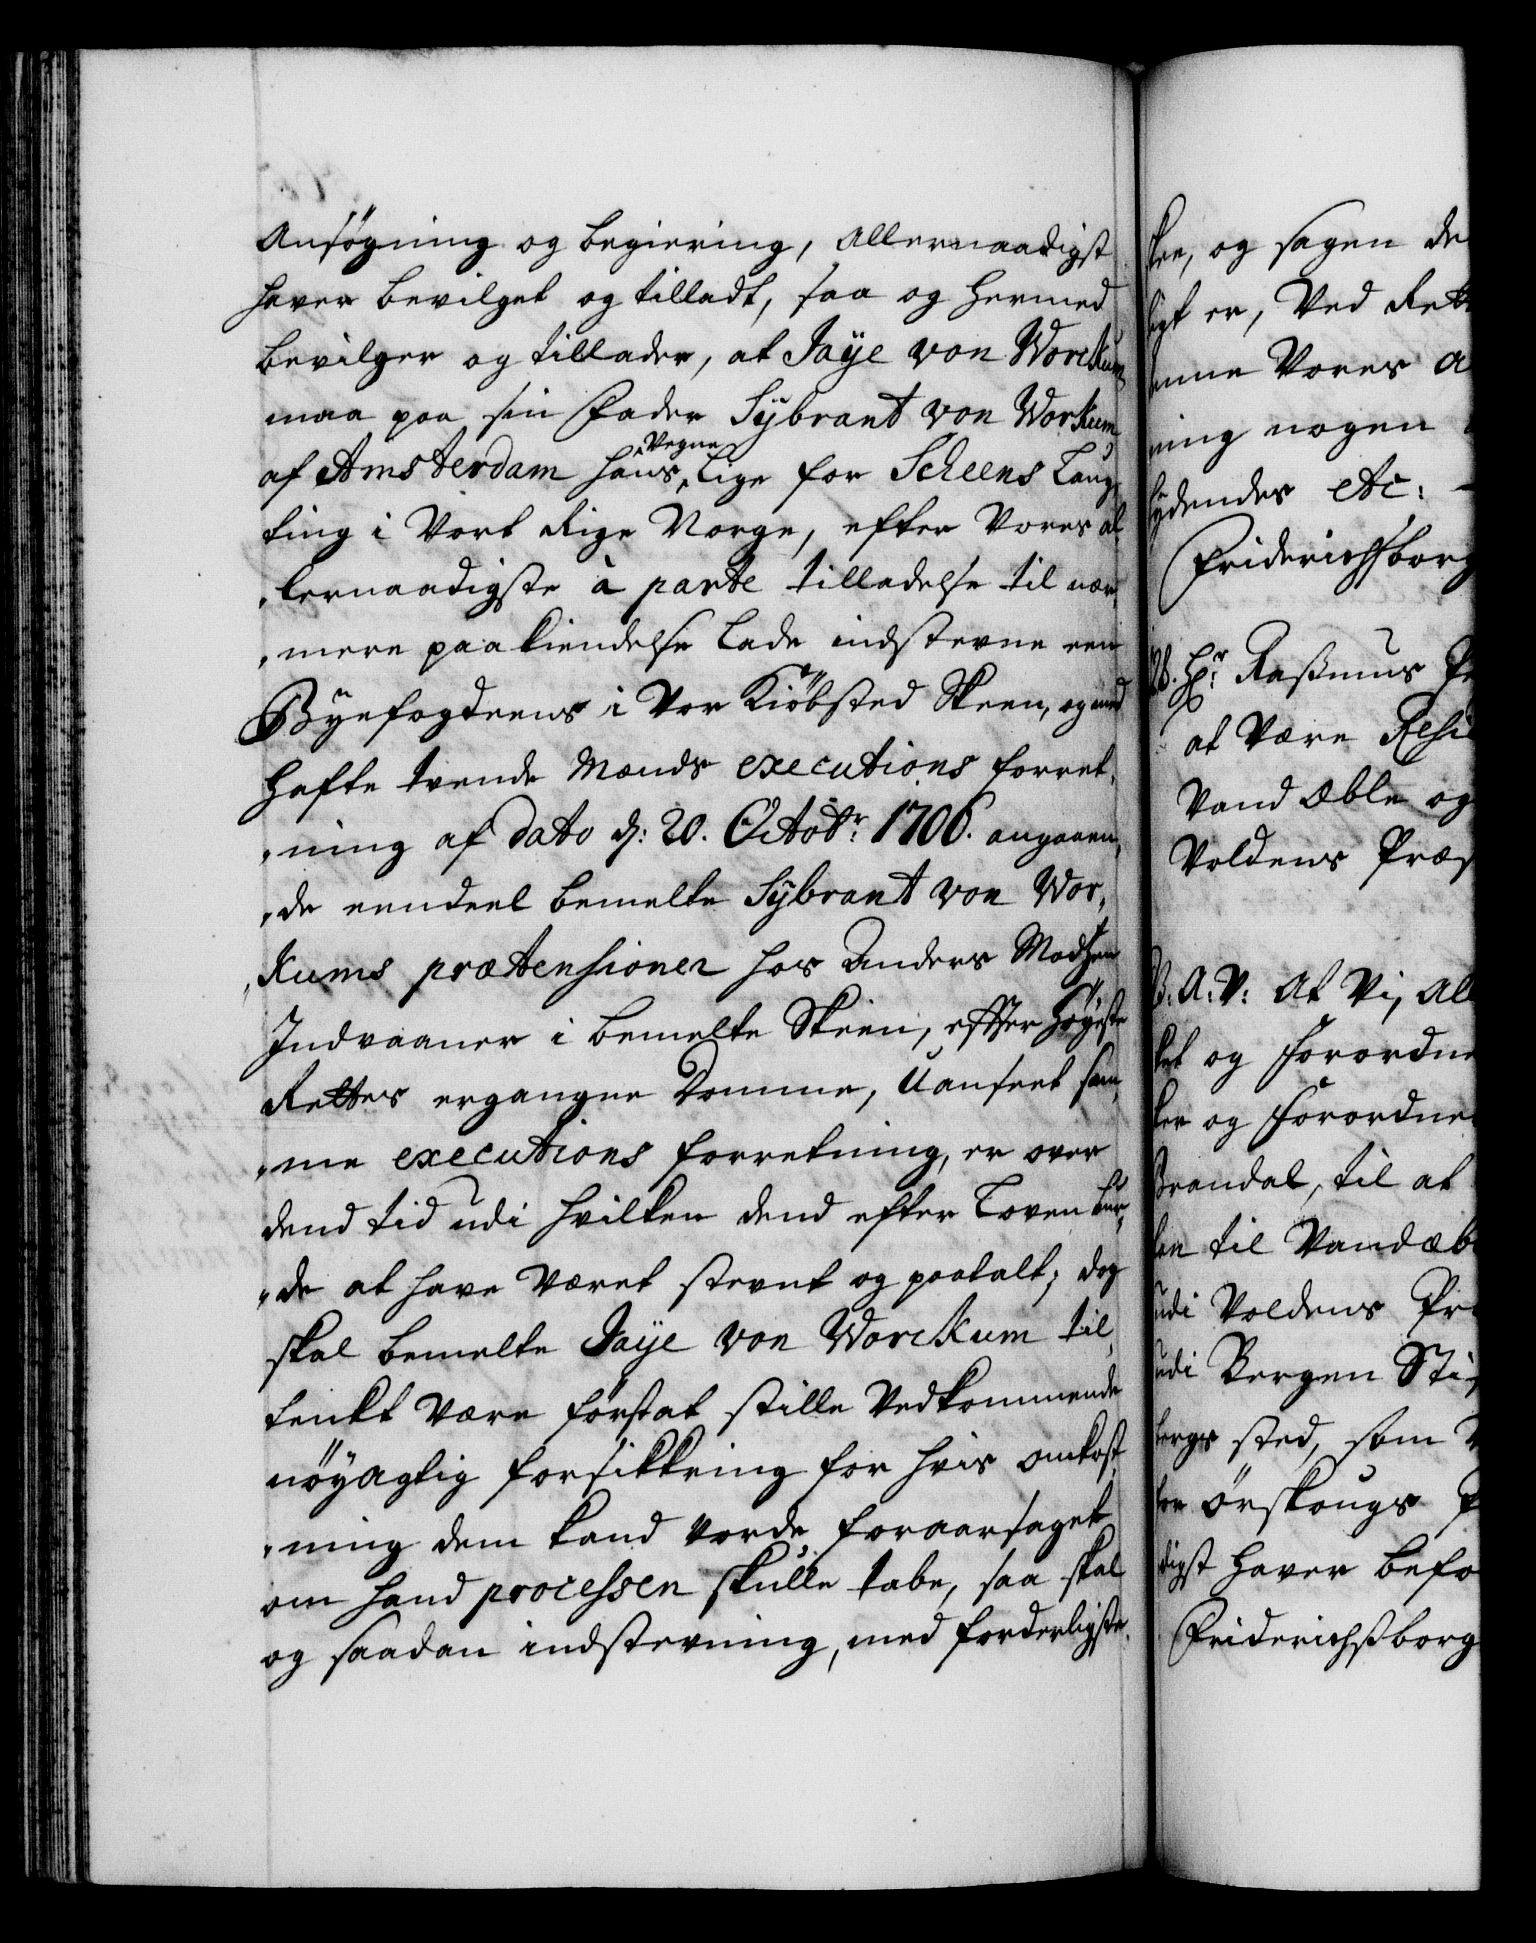 Ansögning og begiering, allernaadigst
haver bevilget og tilladt, saa og hermed
bevilger og tillader, at Jaÿe von Worckum
maa paa sin Fader Sÿbrant von Workum
af Amsterdam hans Vegne, lige for Scheens Laug,
ting i Vort Rige Norge, efter Vores al
,lernaadigste à parte tilladelse til nær,
,mere paakiendelse lade indstevne een
Bÿefogdeens i Vor Kiöbsted Skeen, og med
hafte tvende Mænds executions forret,
,ning af dato d: 20. Octobr: 1706. angaaen,
,de eendeel bemelte Sÿbrant von Wor,
,kums prætensioner hos Anders Madsen
Indvaaner i bemelte Skien, effter Höÿeste
Rettes ergangne Domme, Uanseet sam,
,me executions forretning, er over
dend tid udi hvilken dend efter Loven bur,
,de at have været stevnt og paatalt; dog
skal bemelte Jaÿe von Worckum til,
tenkt være förstat stille Vedkommende
nöÿagtig forsikkring for hvis omkost,
,ning dem kand vorde foraarsaget
om hand processen skulle tabe, saa skal
og saadan indstevning, med forderligste
skee, og sagen de
ligt er, Ved Rett
denne Vores A
ning nogen
bÿdendes etc: -
Friderichsborg
Hr: Rasmus Pe
at være Resi
Vand Æble og
Voldens Præs
B: A: V: At Vi, All
ket og forordne
ker og forordne
Brandal, til at
ken til Vandæb
udi Voldens Pr
udi Bergen Sti
bergs sted, som
for Örskougs P
digst haver befo
Friderichsborg